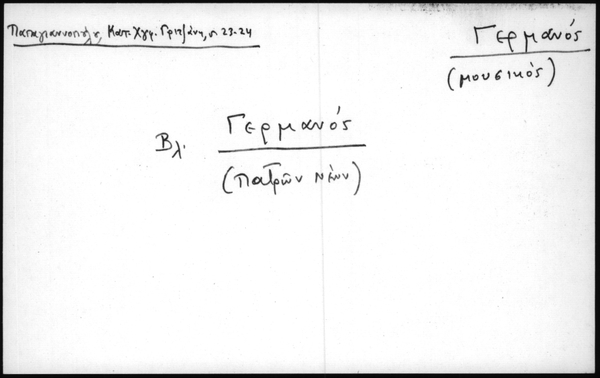 Παπαγιαννοπούλου, Κατ. Χγφ. Γριτζάνη, σ. 23-24
Γερμανός
(μουσικός)
Βλ. Γερμανός
(Πατρῶν Νέων)